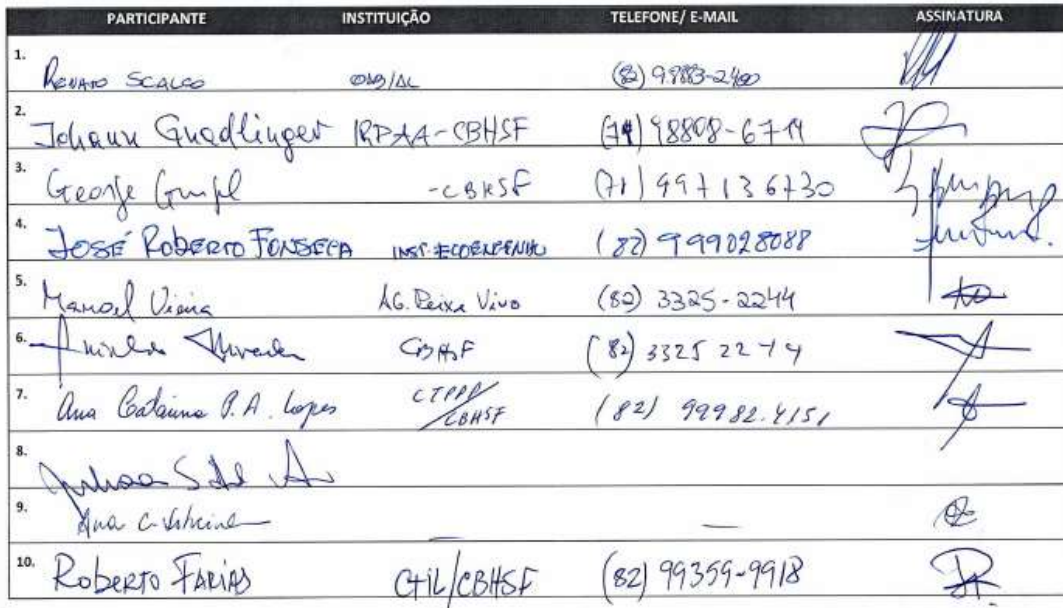 PARTICIPANTE INSTITUIÇÃO TELEFONE/ E-MAIL ASSINATURA
1. RENATO SCALCO OAB/AL (82) 9.9883-2400
2. Johann Gnadlinger IRPAA-CBHSF (74) 98808-6711
3. George -CBHSF (71) 997136730
4. JOSÉ ROBERTO FONSECA INST. ECOENGENHO (82) 999028088
5. Manoel Vieira AG. Peixe Vivo (82) 3325-2244
6. CBHSF (82) 3325 2244
7. Ana Catarina P.A. Lopes CTPPP/CBHSF (82) 99982.4151
8.
9. Ana C. — —
10. ROBERTO FARIAS CTIL/CBHSF (82) 99359-9918